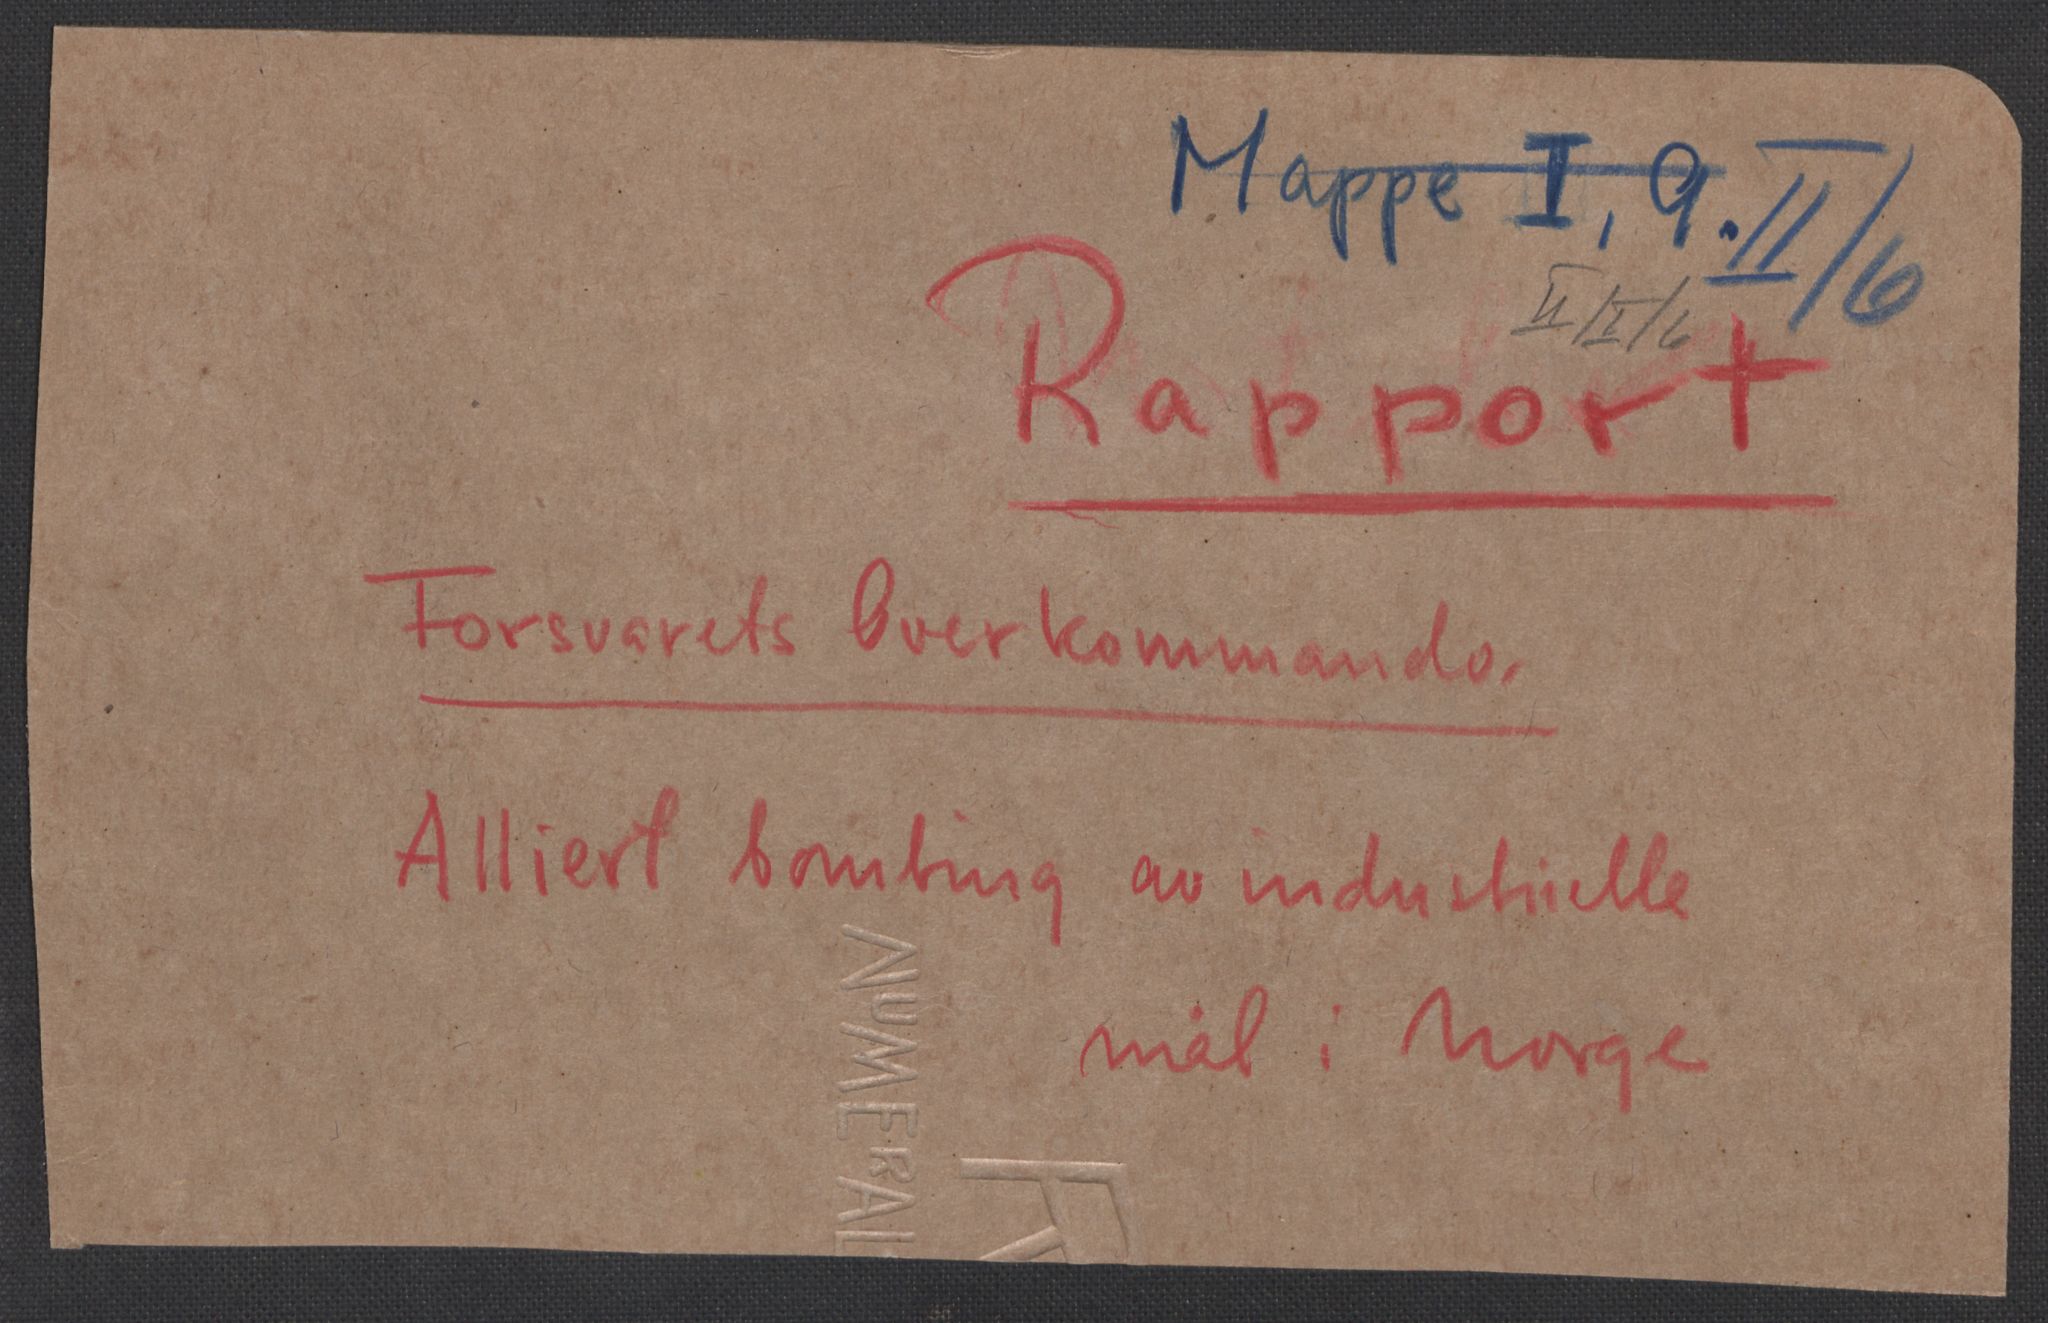 Mappe I, 9. II/6
II/I/6
Rapport
Forsvarets Overkommando.
Alliert bombing av industrielle
mål i Norge
NUMERAL